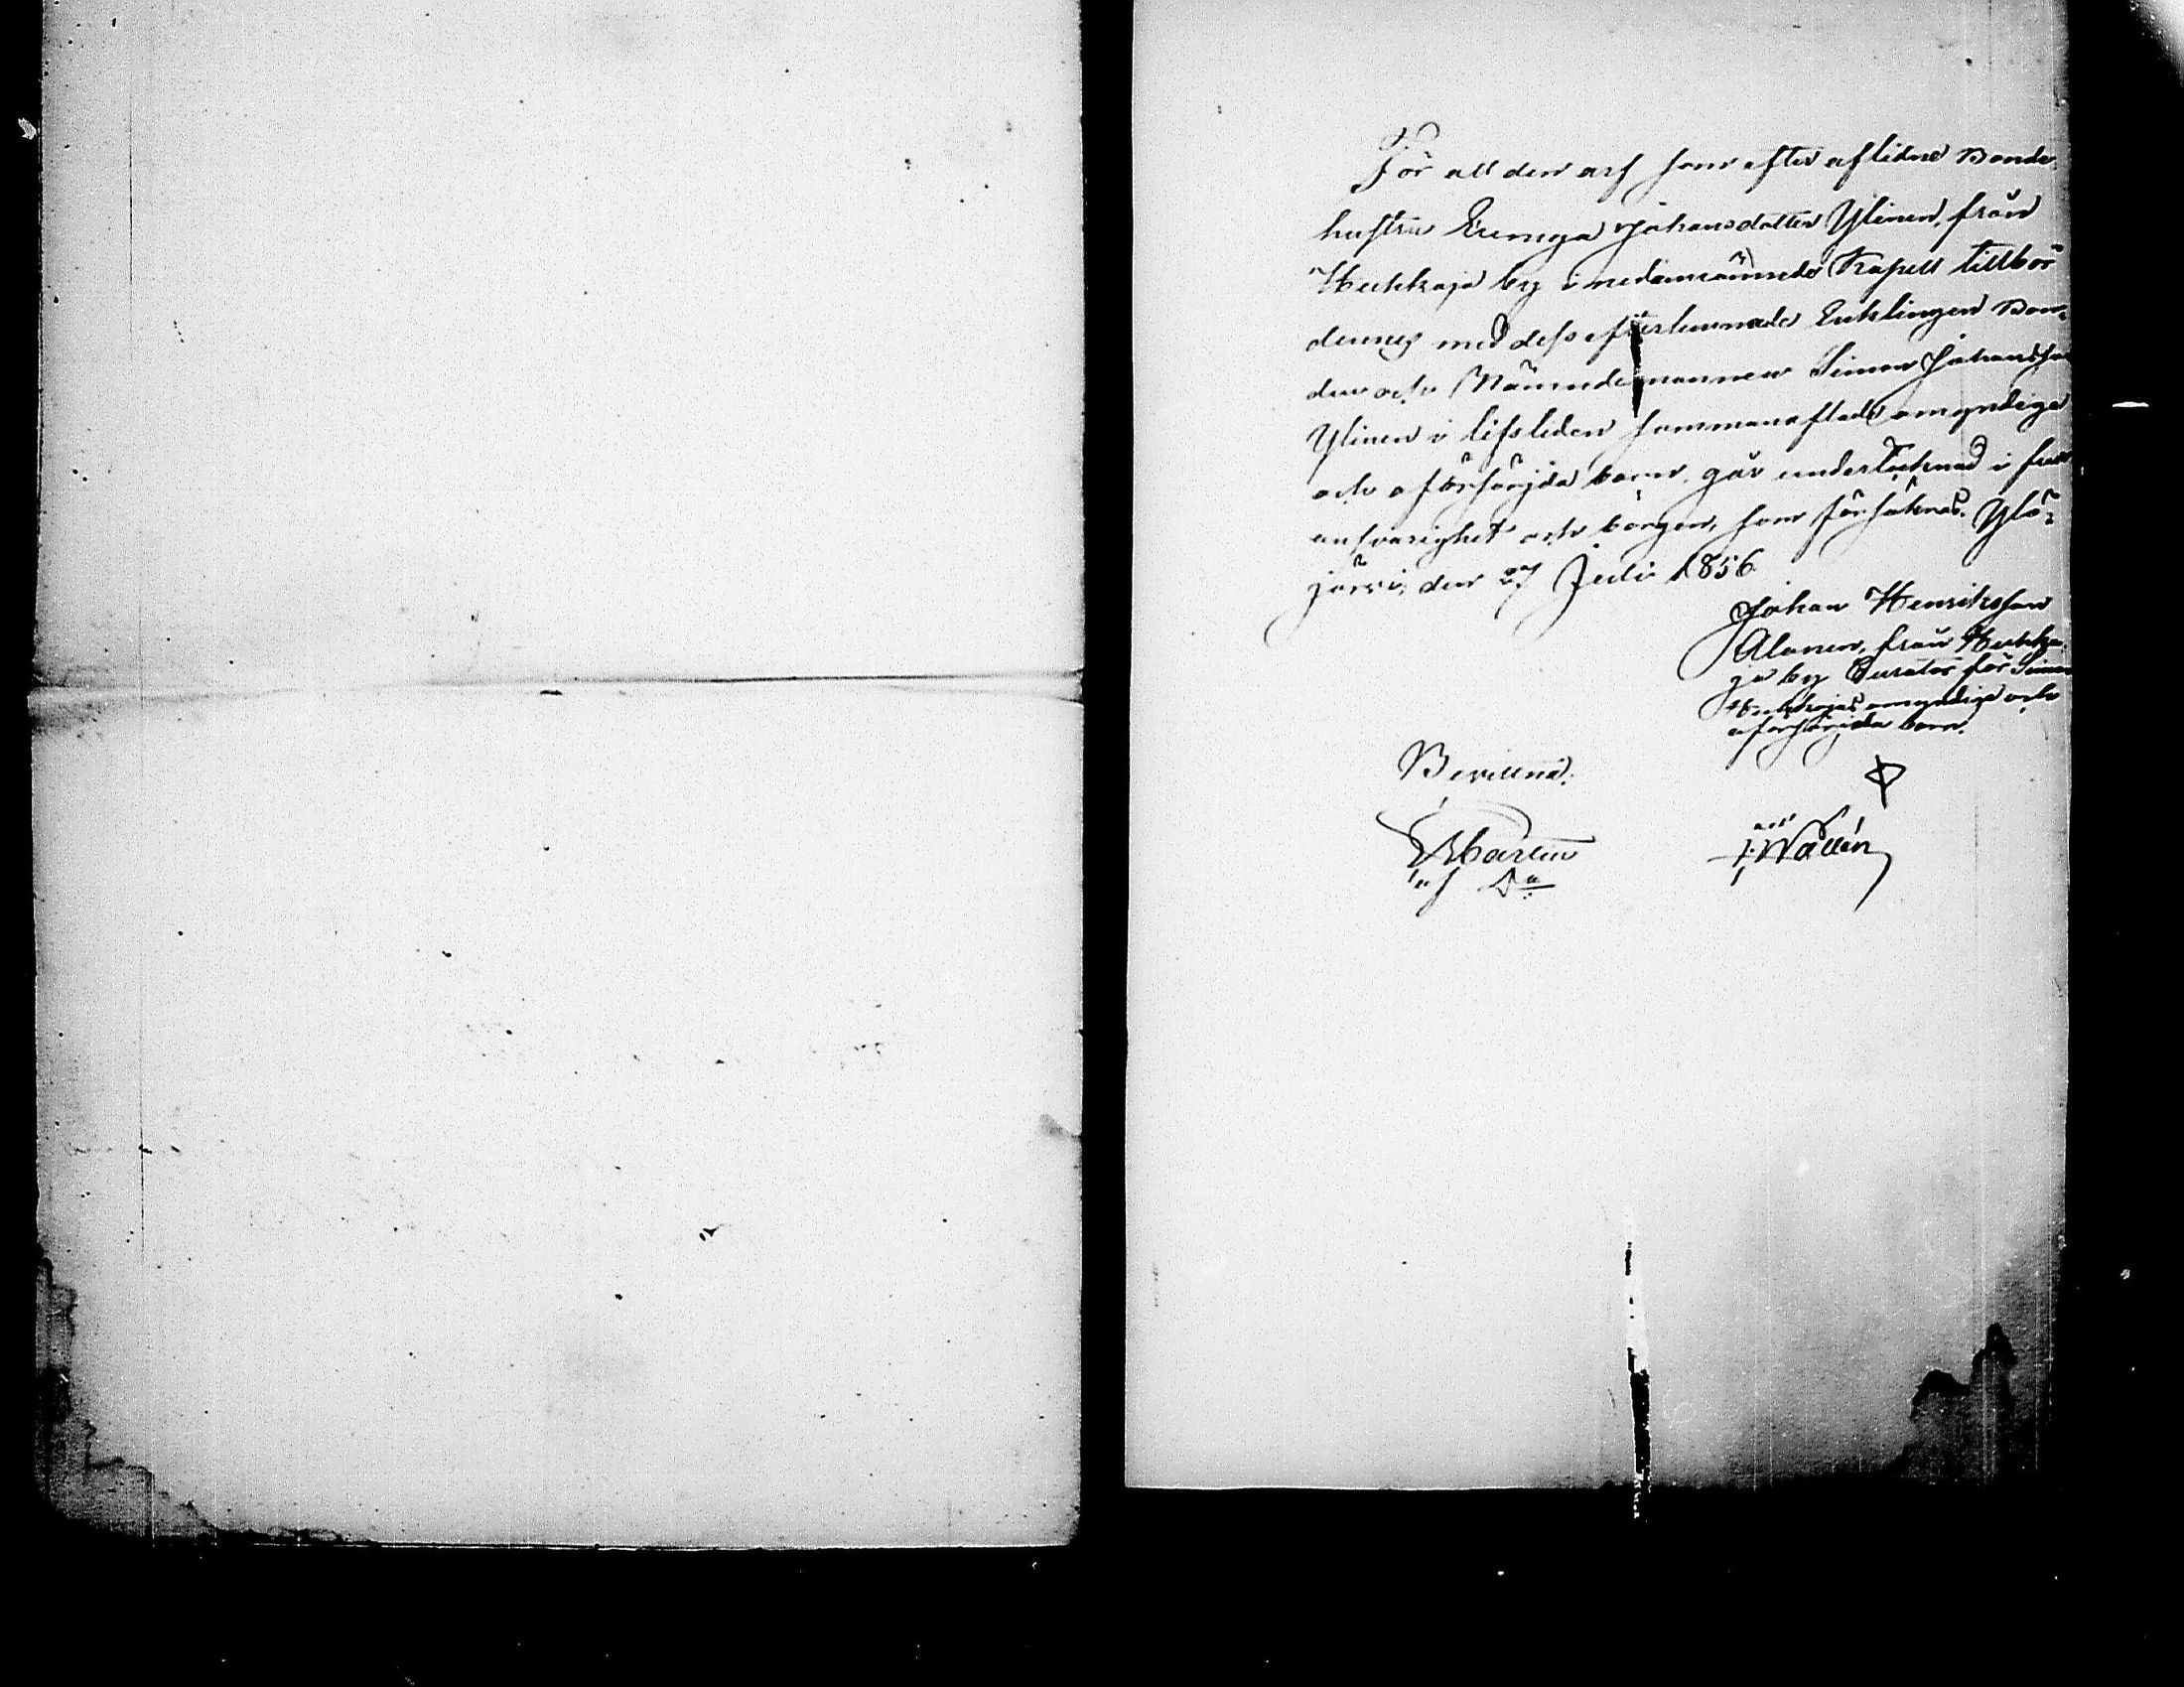 För all den arf som efter aflidne Bonde
hustrun Johansdotter Ylinen, från
by i nedannämnde Kapell tillhör
dennes med dess efterlemnade Enklingen Bon¬
den och Nämndemannen Simon Johansson
Ylinen i lifstiden sammanaflade omyndiga
och oförsörjda barn, går undertecknad i full
ansvarighet och borgen, som försäkras. Ylö¬
järvi, den 27 Juli 1856.
Johan Henriksson
Alanen, från
ja by Curator för Simon
omyndige och
oförsörjda barn.
Bevittna:
Wallén